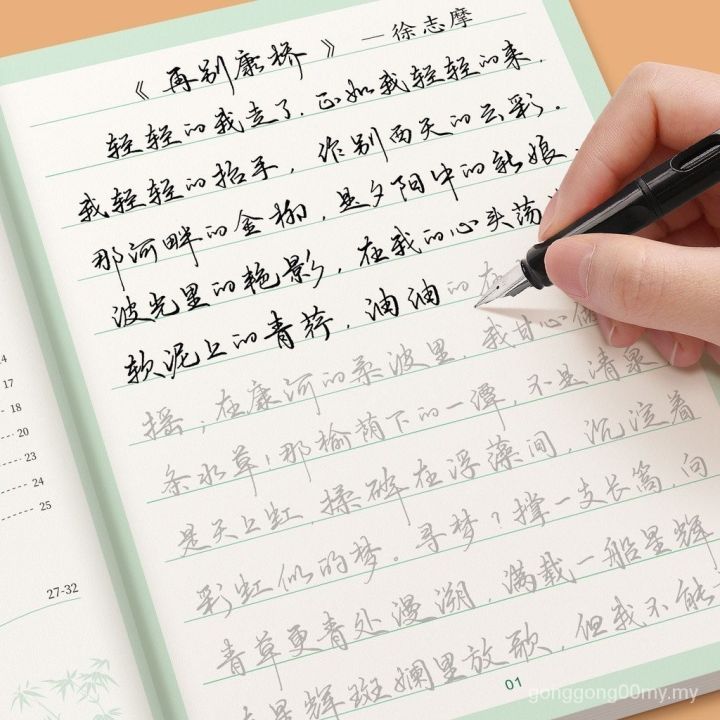 《再别康桥》—徐志摩
轻轻的我走了，正如我轻轻的来，
我轻轻的招手，作别西天的云彩。
那河畔的金柳，是夕阳中的新娘，
波光里的艳影，在我的心头荡
软泥上的青荇，油油的在
摇；在康河的柔波里，我甘心做
条水草！那榆荫下的一潭，不是清泉
是天上虹，揉碎在浮藻间，沉淀着
彩虹似的梦。寻梦？撑一支长篙，向
青草更青处漫溯，满载一船星辉
星辉斑斓里放歌，但我不能
14
17
18
20
23
24
25
27-32
01
gonggong00my.my